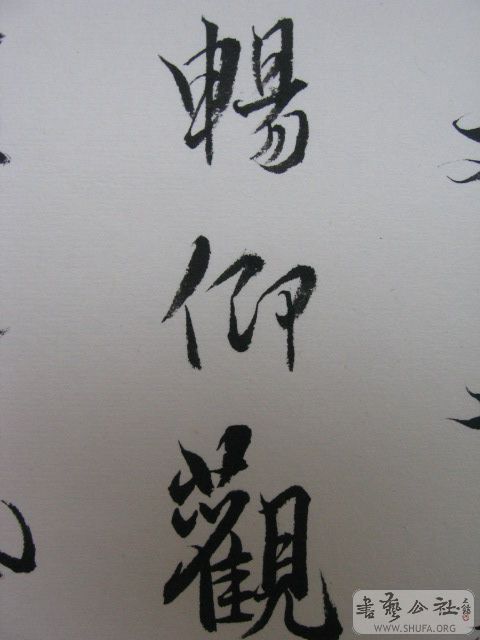 暢仰觀
書藝公社
WWW.SHUFA.ORG